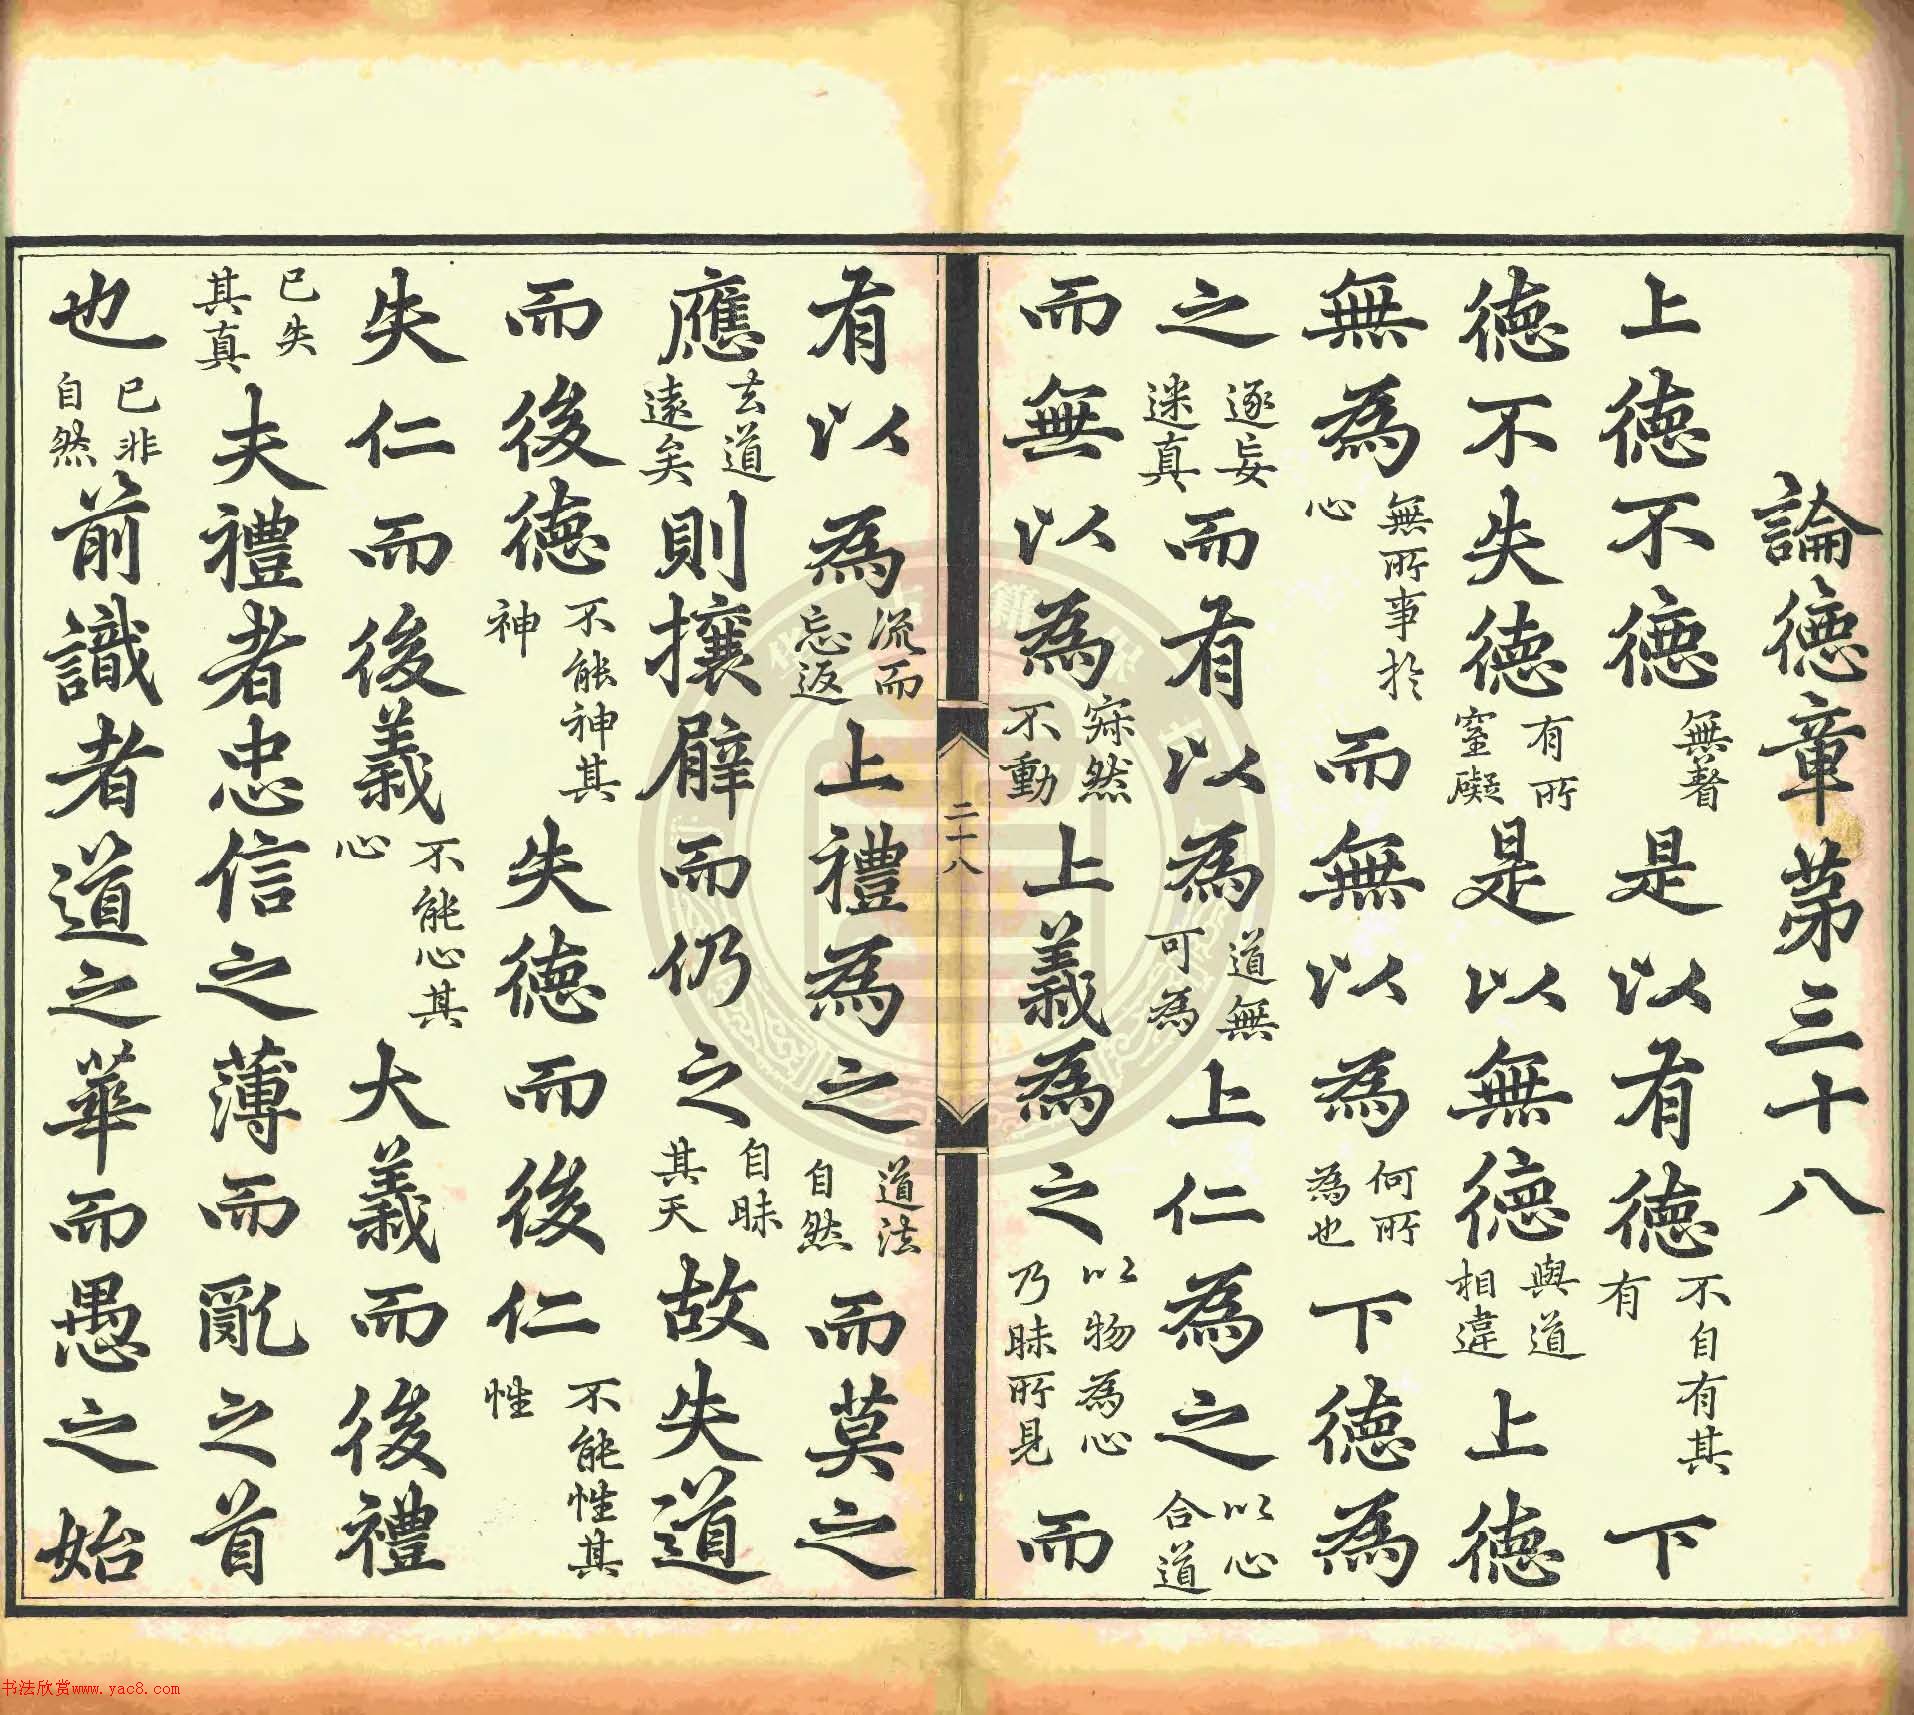 論德章第三十八
上德不德無著是以有德不自有其有下
德不失德有所窒礙是以無德與道相違上德
無為無所事於心而無以為何所為也下德為
之逐妄迷真而有以為道無可為上仁為之以心合道
而無以為寂然不動上義為之以物為心乃昧所見而
二十八
有以為流而忘返上禮為之道法自然而莫之
應去道遠矣則攘臂而仍之自昧其天故失道
而後德不能神其神失德而後仁不能性其性
失仁而後義不能心其心大義而後禮
已失其真夫禮者忠信之薄而亂之首
也已非自然前識者道之華而愚之始
书法欣赏www.yac8.com